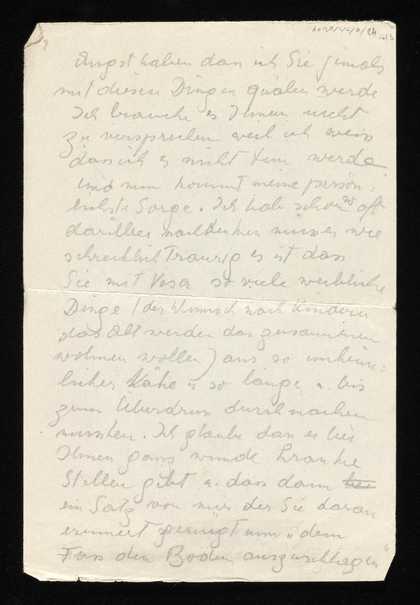 Angst haben dan ich Sie jemals
mit diesen Dingen quälen werde
Ich brauche es Ihnen nicht
zu versprechen weil ich weis
dass ich es nicht tun werde
und nun kommt meine persön-
lichste Sorge. Ich hab schon so oft
darüber nachdenken müssen wie
schrecklich traurig es ist dan
Sie mit Vesa so viele weibliche
Dinge (der Wunsch nach Kindern
das Alt werden das zusammen
wohnen wollen) aus so unheim-
licher Nähe u so lange u. bis
zum Überdruss durchmachen
mussten. Ich glaube dan es bei
Ihnen ganz wunde kranke
Stellen gibt u. dass dann
ein Satz von mir der Sie daran
erinnert genügt um "dem
Fass den Boden auszuschlagen"